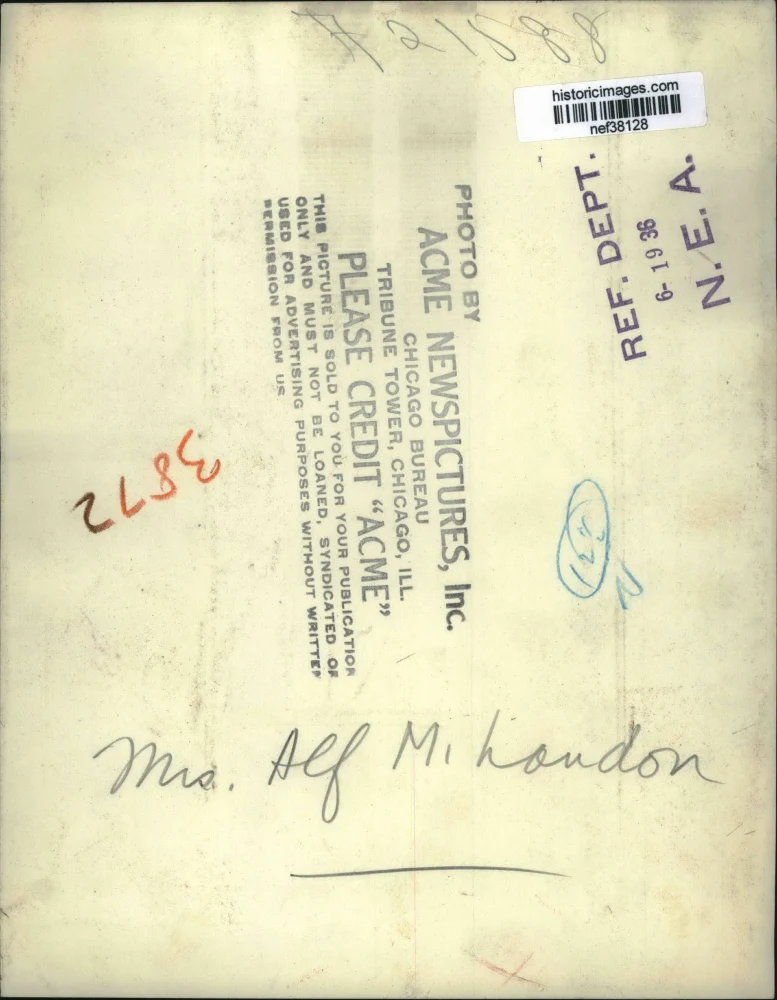 historicimages.com
nef38128
REF. DEPT.
6-19 36
N. E. A.
PHOTO BY
ACME NEWSPICTURES, Inc.
CHICAGO BUREAU
TRIBUNE TOWER, CHICAGO, ILL.
PLEASE CREDIT “ACME”
THIS PICTURE IS SOLD TO YOU FOR YOUR PUBLICATION
ONLY AND MUST NOT BE LOANED, SYNDICATED OR
USED FOR ADVERTISING PURPOSES WITHOUT WRITTEN
PERMISSION FROM US
Mrs. Alf M. Landon